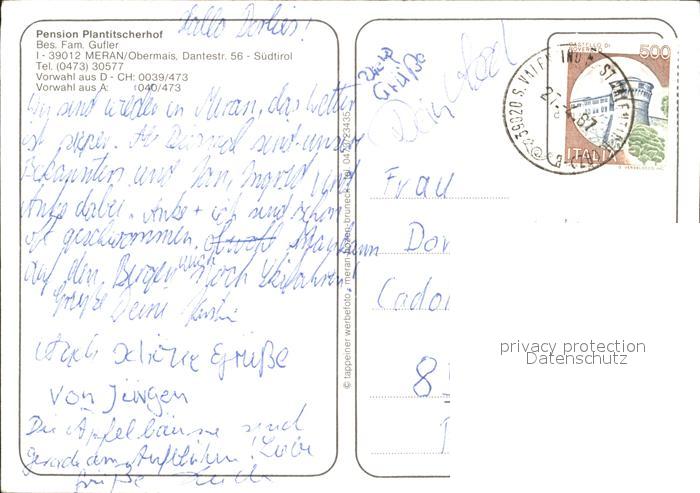 Hallo Dorlies!
Pension Plantitscherhof
Bes. Fam. Gufler
I - 39012 MERAN/Obermais, Dantestr. 56 - Südtirol
Tel. (0473) 30577
Vorwahl aus D - CH: 0039/473
Vorwahl aus A: 040/473
Wir sind wieder in Meran, das Wetter
ist super. Diesmal sind unser
Bekannten und Jan, Ingrid und
Anke dabei. Anke + ich sind schon
oft geschwommen. Man kann
auf den Bergen auch noch Skifahren!
Grüße Deine
Auch schöne Grüße
von Jürgen
Die Apfelbäume sind
gerade am Aufblühen! Liebe
Grüße
Grüße
© tappeiner werbefoto · meran
39020 S. VALENTINO
27.4.87
CASTELLO DI
500
ITALIA
Frau
Dor
Cador
8
privacy protection
Datenschutz